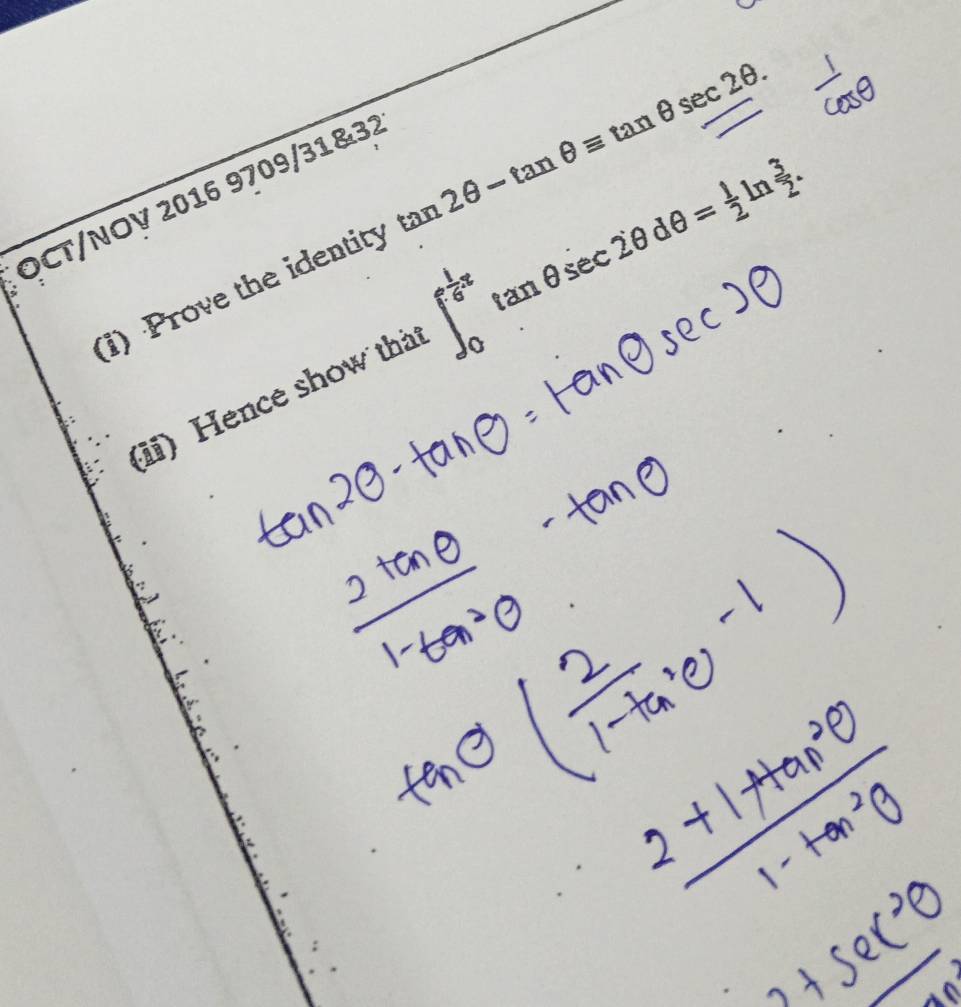 OCT/NOV 2016 9709/31&32
(i) Prove the identity tan 2θ − tan θ ≡ tan θ sec 2θ.
1/cosθ
(ii) Hence show that ∫₀^{⅙π} tan θ sec 2θ dθ = ½ ln 3/2.
tan2θ - tanθ = tanθ sec2θ
2 tanθ / 1-tan²θ - tanθ
tanθ ( 2 / 1-tan²θ - 1 )
2 + 1 + tan²θ / 1 - tan²θ
+ sec²θ